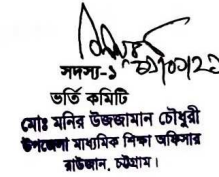 সদস্য-১
ভর্তি কমিটি
মোঃ মনির উজজামান চৌধুরী
উপজেলা মাধ্যমিক শিক্ষা অফিসার
রাউজান, চট্টগ্রাম।